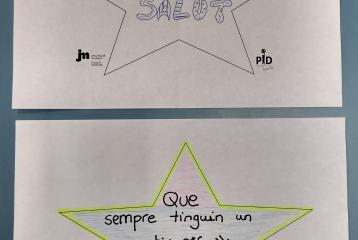 SALUT
jm
PID
Que
sempre tinguin un